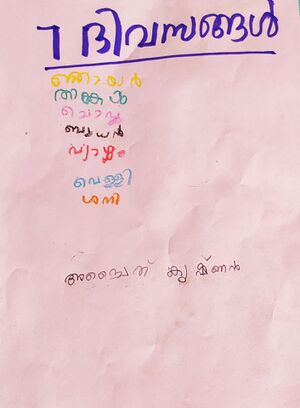 7 ദിവസങ്ങൾ
ഞായർ
തിങ്കൾ
ചൊവ്വ
ബുധൻ
വ്യാഴം
വെള്ളി
ശനി
കൃഷ്ണൻ